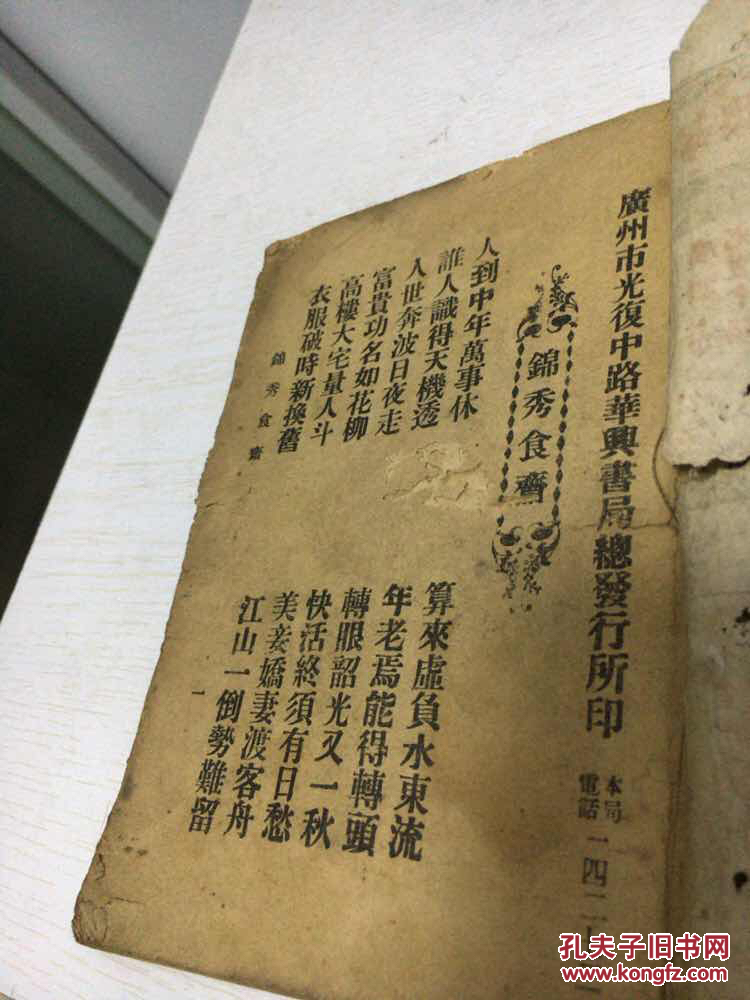 廣州市光復中路華興書局總發行所印
本局
電話
一四二
錦秀食齋
人到中年萬事休
算來虛負水東流
誰人識得天機透
年老焉能得轉頭
人世奔波日夜走
轉眼韶光又一秋
富貴功名如花柳
快活終須有日愁
高樓大宅量人斗
美妾嬌妻渡客舟
衣服破時新換舊
江山一倒勢難留
錦秀食齋
一
孔夫子旧书网
www.kongfz.com